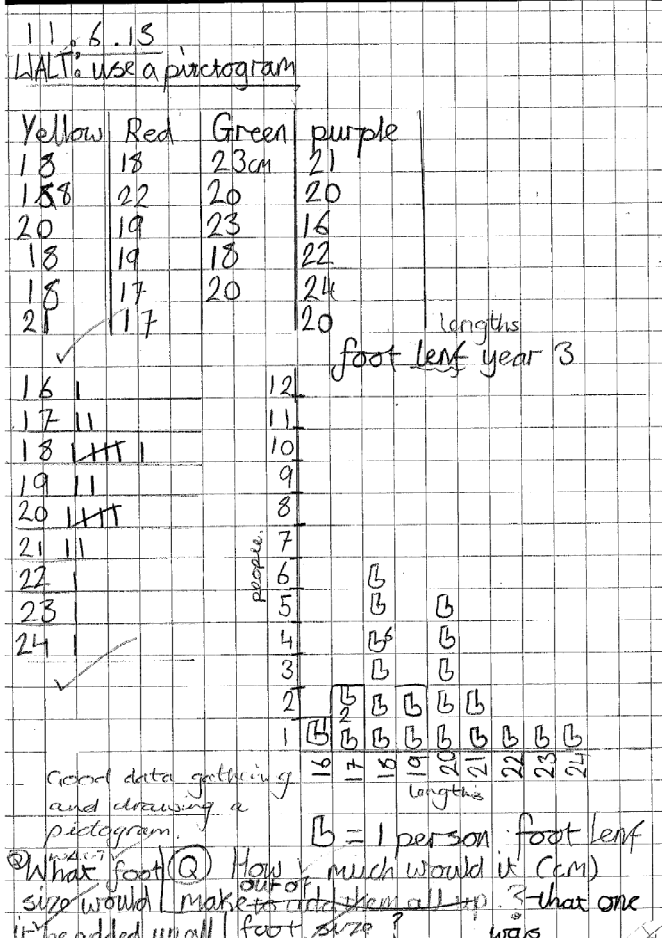 11.6.15
WALT: use a pirctogram
Yellow Red Green purple
18 18 23cm 21
188 22 20 20
20 19 23 16
18 19 18 22
18 17 20 24
21 17 20
lengths
foot lenf year 3
16 | 12
17 || 11
18 |||| | 10
19 || 9
20 |||| 8
21 || 7
22 | 6
23 | 5
24 | 4
3
2
1
people.
2
6
16 17 18 19 20 21 22 23 24
lengths
Good data gathering
and drawing a
pictogram.
= 1 person foot lenf
Q What foot
size would
Q How much would it (cm)
make to add them all up? that one
out of
foot size?
was